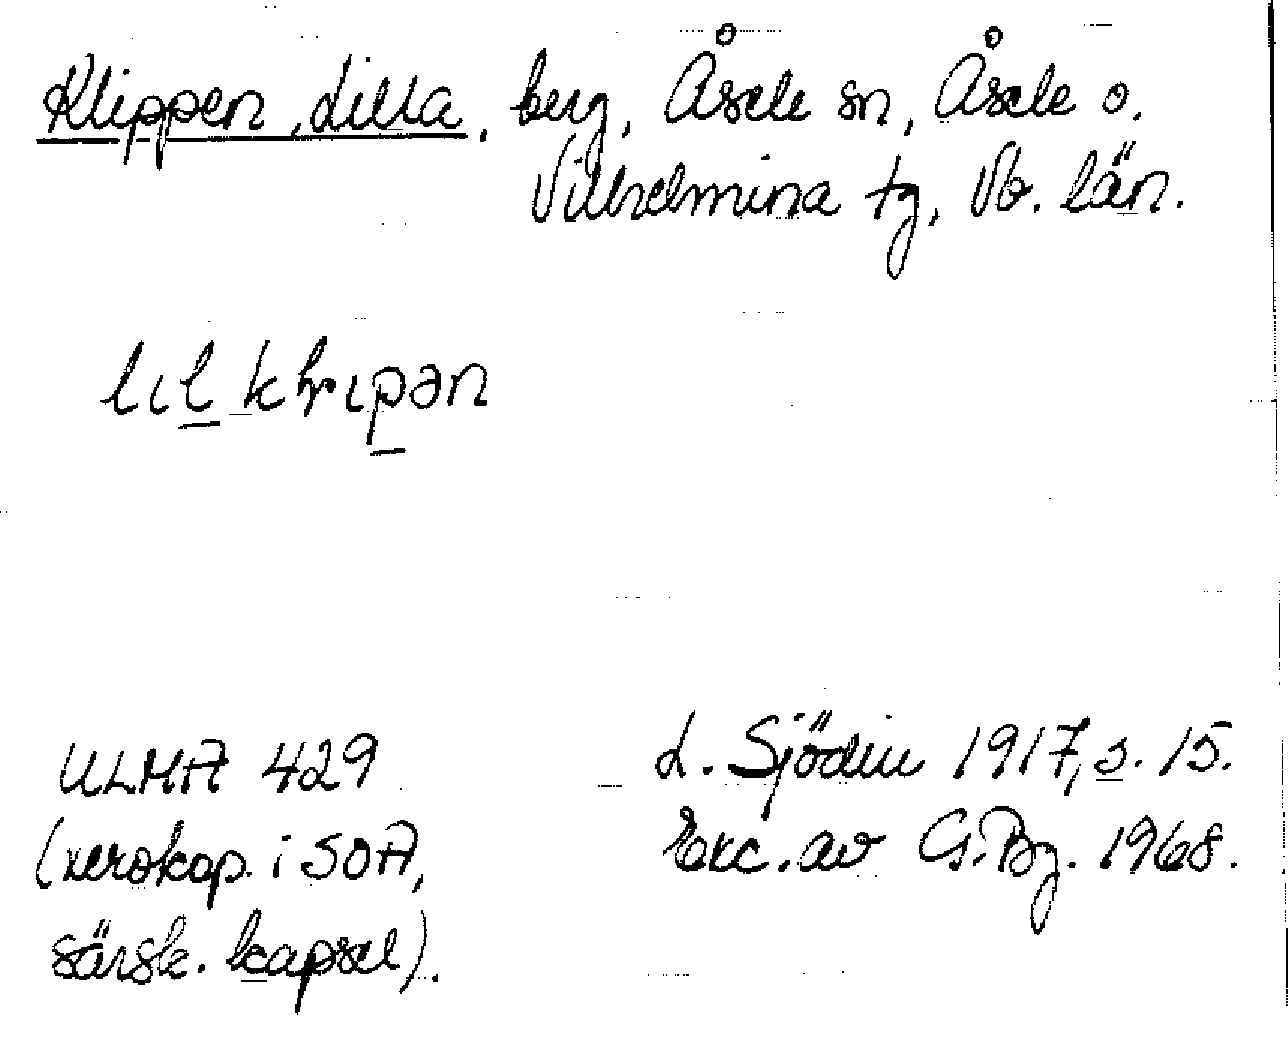 Klippen, Lilla, berg, Åsele sn, Åsele o.
Vilhelmina tg, Vb. län.
lıl̲ klıp̲ən
ULMA 429
(xerokop. i SOA,
särsk. kapsel).
L. Sjödin 1917, s. 15.
Exc. av G. Bg. 1968.